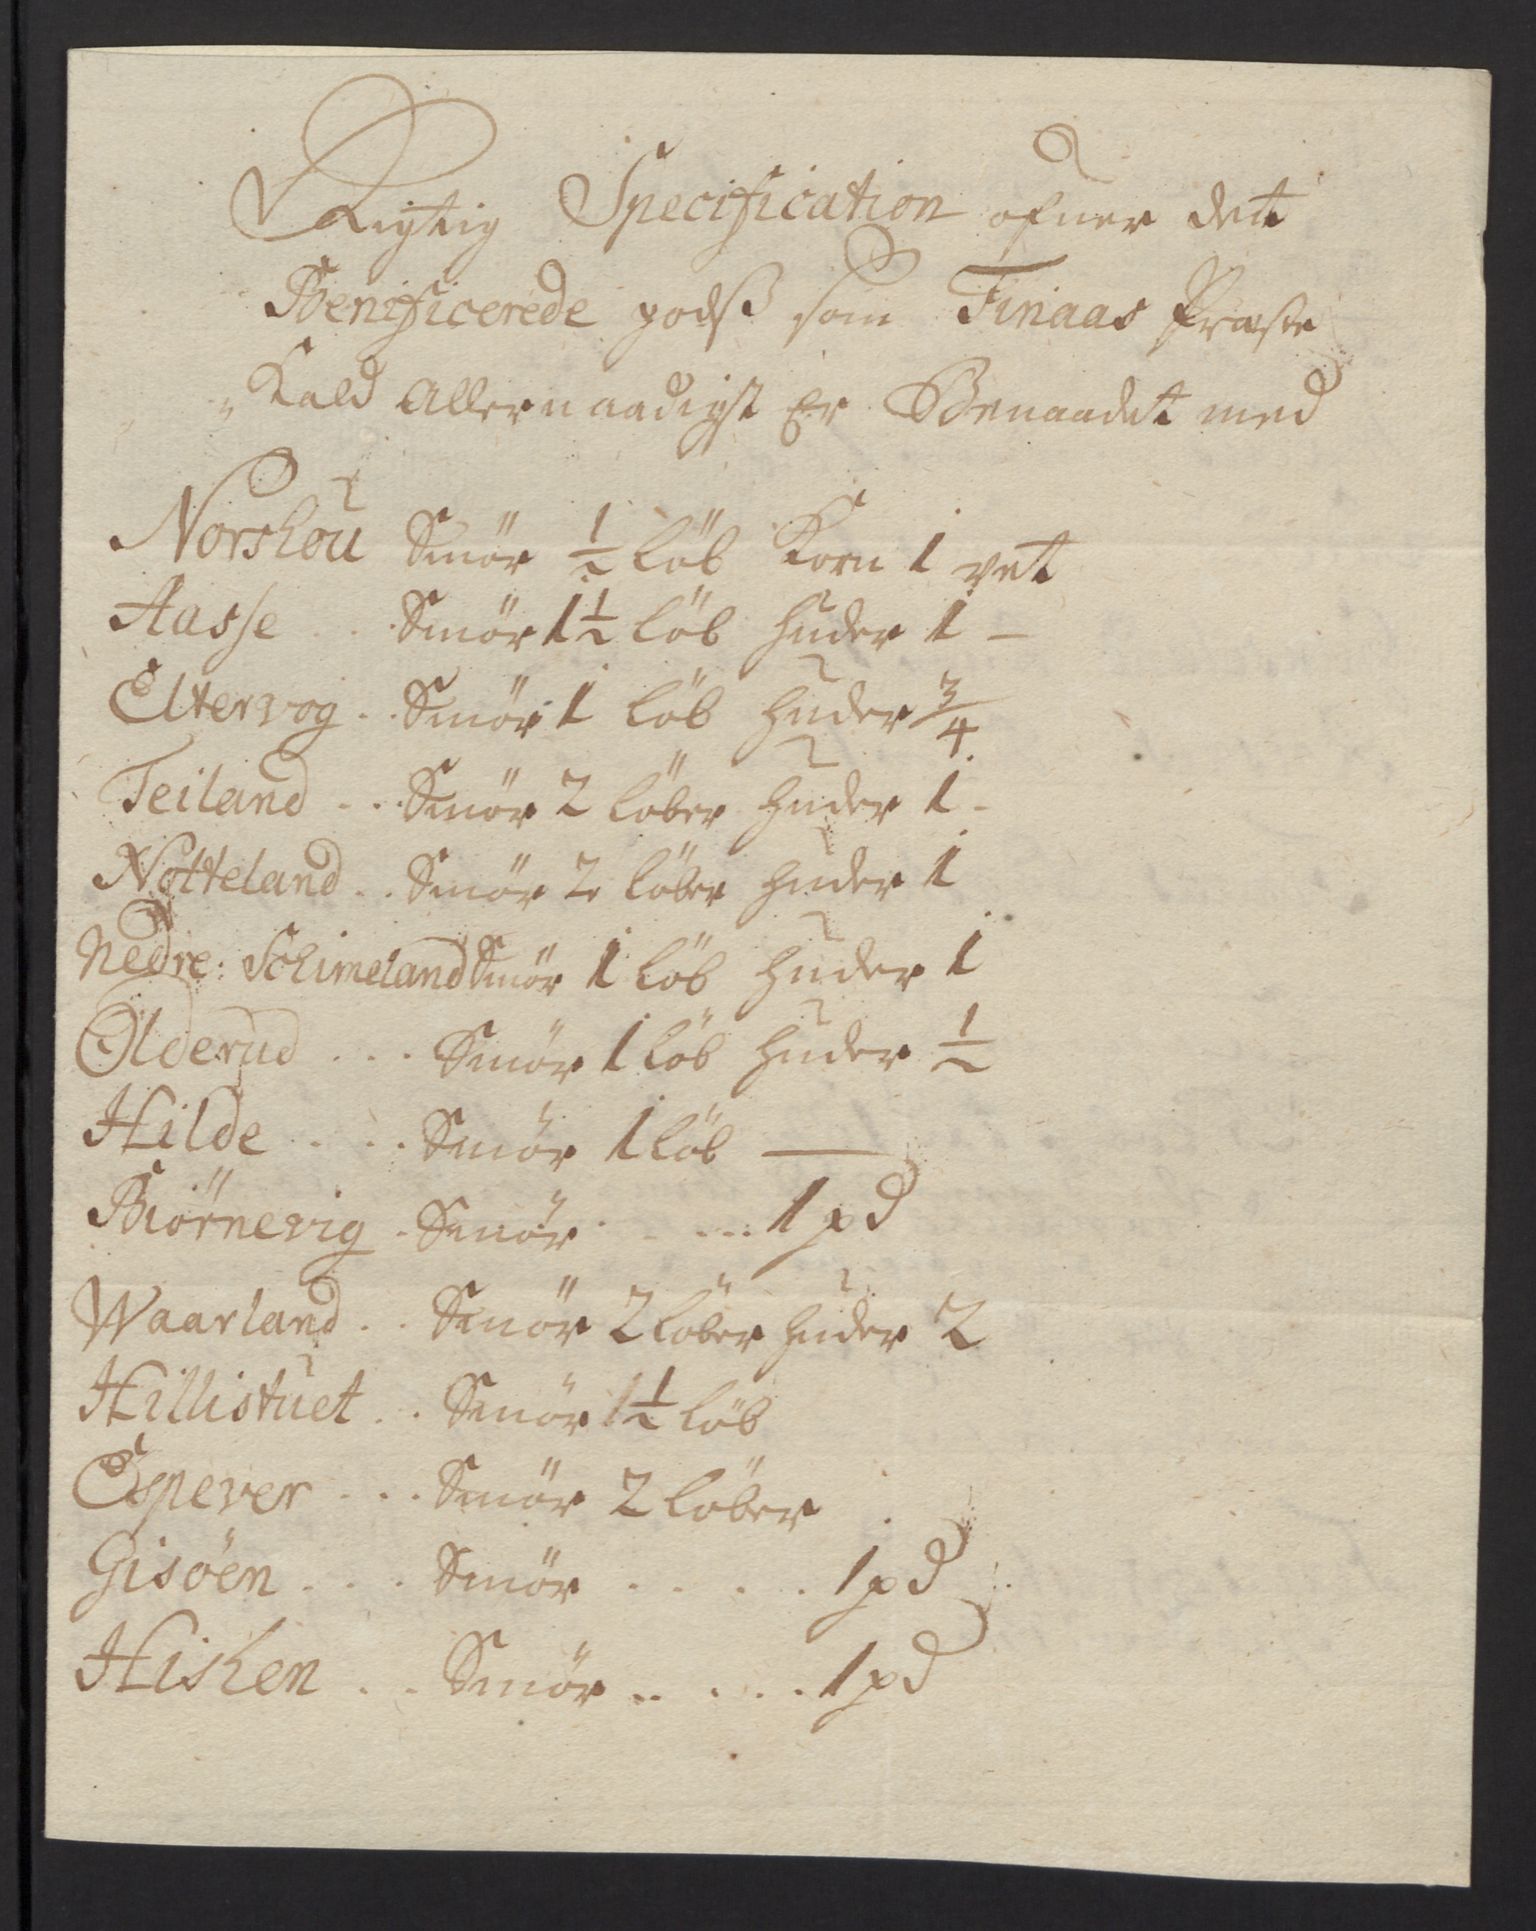 Rigtig Specification ofuer det
Benificerede godß som Finaas Præste
Kald Allernaadigst Er Benaadet med
Norskou Smör 1/2 löb Korn 1 vet
Aasse . . . Smör 1 1/2 löb huder 1 –
Eltervog . . Smör 1 löb huder 3/4
Teiland . . . Smör 2 löber huder 1 -
Notteland . . Smör 2 löber huder 1
Nedre: Schimeland Smör 1 löb huder 1
Olderud . . . Smör 1 löb huder 1/2
Hilde . . . Smör 1 löb —
Biörnevig . Smör . . . . 1 pd
Waarland . . Smör 2 löber huder 2
Hillistuet . . Smör 1 1/2 löb
Espever . . . Smör 2 löber
Gisöen . . . Smör . . . . 1 pd
Hisken . . Smör . . . . 1 pd